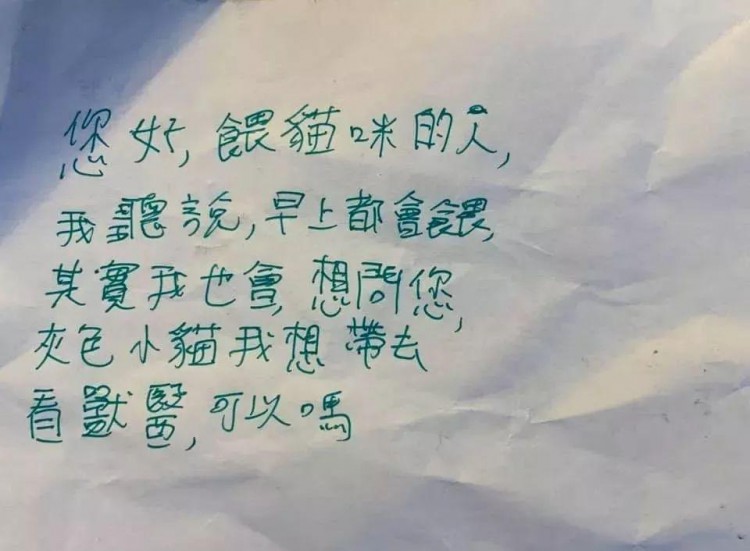 您好,餵貓咪的人,
我聽說,早上都會餵,
其實我也會,想問您,
灰色小貓我想帶去
看獸醫,可以嗎